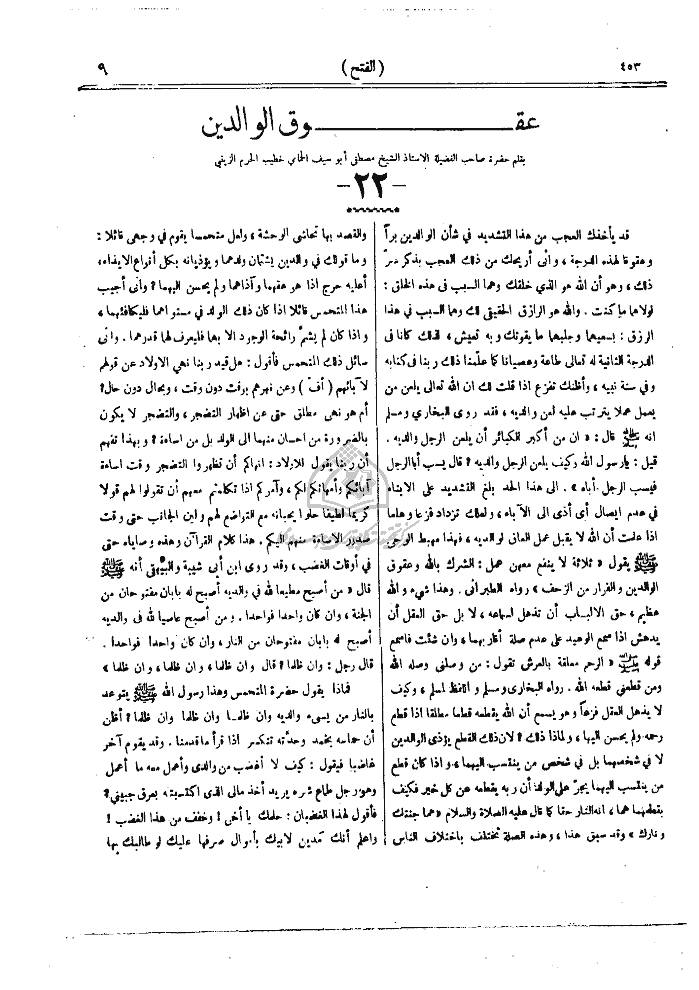 ٤٥٣
( الفتح )
٩
عقـــوق الوالدين
بقلم حضرة صاحب الفضيلة الاستاذ الشيخ مصطفى أبو سيف الحمامي خطيب الحرم الزينبي
-٢٢-
قد يأخذك العجب من هذا التشديد في شأن الوالدين براً
وعقوقا لهذه الدرجة ، وانى أريحك من ذلك العجب بذكر سرّ
ذلك ، وهو أن الله هو الذي خلقك وهما السبب فى هذه الخلق :
لولاهما ما كنت . والله هو الرازق الحقيقى لك وهما السبب في هذا
الرزق : بسعيهما وجلبهما ما يقوتك وبه تعيش ، لذلك كانا فى
الدرجة الثانية له تعالى طاعة وعصيانا كما علّمنا ذلك ربنا فى كتابه
وفي سنة نبيه ، وأظنك تفزع اذا قلت لك ان الله تعالى يلعن من
يعمل عملا يترتب عليه لعن والديه ، فقد روى البخاري ومسلم
انه ﷺ قال : « ان من أكبر الكبائر أن يلعن الرجل والديه .
قيل : يارسول الله وكيف يلعن الرجل والديه ؟ قال يسب أبا الرجل
فيسب الرجل أباه » . الى هذا الحد بلغ التشديد على الابناء
في عدم ايصال أى أذى الى الآباء ، ولعلك تزداد فزعا وهلعا
اذا علمت أن الله لا يقبل عمل العاق لوالديه ، فهذا مهبط الوحي
ﷺ يقول « ثلاثة لا ينفع معهن عمل : الشرك بالله وعقوق
الوالدين والفرار من الزحف » رواه الطبرانى . وهذا شيء والله
عظيم ، حق الالباب أن تذهل لسماعه ، لا بل حق العقل أن
يدهش اذا سمع الوعيد على عدم صلة أقاربهما ، وان شئت فاسمع
قوله ﷺ « الرحم معلقة بالعرش تقول : من وصلنى وصله الله
ومن قطعنى قطعه الله . رواه البخارى ومسلم و اللفظ لمسلم ، وكيف
لا يذهل العقل فزعاً وهو يسمع أن الله يقطعه قطعا مطلقا اذا قطع
رحمه ولم يحسن اليها ، ولماذا ذلك ؟ لان ذلك القطع يؤذى الوالدين
لا في شخصهما بل في شخص من ينتسب اليهما ، واذا كان قطع
من ينتسب اليهما يجرّ على الولد أن ربه يقطعه عن كل خير فكيف
بقطعهما هما ، انه النار حقا كما قال عليه الصلاة والسلام « هما جنتك
ونارك » وقد سبق هذا ، وهذه الصلة تختلف باختلاف الناس
والقصد بها تحاشى الوحشة ، ولعل متحمسا يقوم في وجهى قائلا :
وما قولك في والدين يشتمان ولدهما و يؤذيانه بكل أنواع الايذاء،
أعليه حرج اذا هو عقهما وآذاهما ولم يحسن اليهما ؟ وانى أجيب
هذا المتحمس قائلا اذا كان ذلك الولد فى مستواهما فليكافئهما ،
و اذا كان لم يشمّ رائحة الوجود الا بهما فليعرف لهما قدرهما . وانى
سائل ذلك المتحمس فأقول : هل قيد ربنا نهي الاولاد عن قولهم
لآبائهم ( أف ) وعن نهرهم بوقت دون وقت ، وبحال دون حال؟
أم هو نهى مطلق حتى عن اظهار التضجر ، والتضجر لا يكون
بالضرورة من احسان منهما الى الولد بل من اساءة ؟ و بهذا تفهم
أن ربنا يقول للاولاد : انهاكم أن تظهروا التضجر وقت اساءة
آبائكم وامهاتكم لكم ، وآمركم اذا تكلمتم معهم أن تقولوا لهم قولا
كريما لطيفا حلوا يحبانه مع التواضع لهم ولين الجانب حتى وقت
صدور الاساءة منهم اليكم . هذا كلام القرآن وهذه وصاياه حتى
في أوقات الغضب ، وقد روى ابن أبي شيبة والبيهقي أنه ﷺ
قال « من أصبح مطيعا لله في والديه أصبح له بابان مفتوحان من
الجنة ، وان كان واحدا فواحدا . ومن أصبح عاصيا لله فى والديه
أصبح له بابان مفتوحان من النار ، وان كان واحدا فواحدا .
قال رجل : وان ظلما ؟ قال وان ظلما ، وان ظلما ، وان ظلما »
فماذا يقول حضرة المتحمس وهذا رسول الله ﷺ يتوعد
بالنار من يسىء والديه وان ظلما وان ظلما وان ظلما ؟ أظن
أن حماسه يخمد وحدّته تنكسر اذا قرأ ما قدمنا . وقد يقوم آخر
غاضبا فيقول : كيف لا أغضب من والدى وأعمل معه ما أعمل
وهو رجل طماع شره يريد أخذ مالى الذى اكتسبته بعرق جبيني ؟
فأقول لهذا الغضبان : حلمك يا أخى ! وخفف من هذا الغضب !
واعلم أنك مدين لابيك بأموال صرفها عليك لو طالبك بها